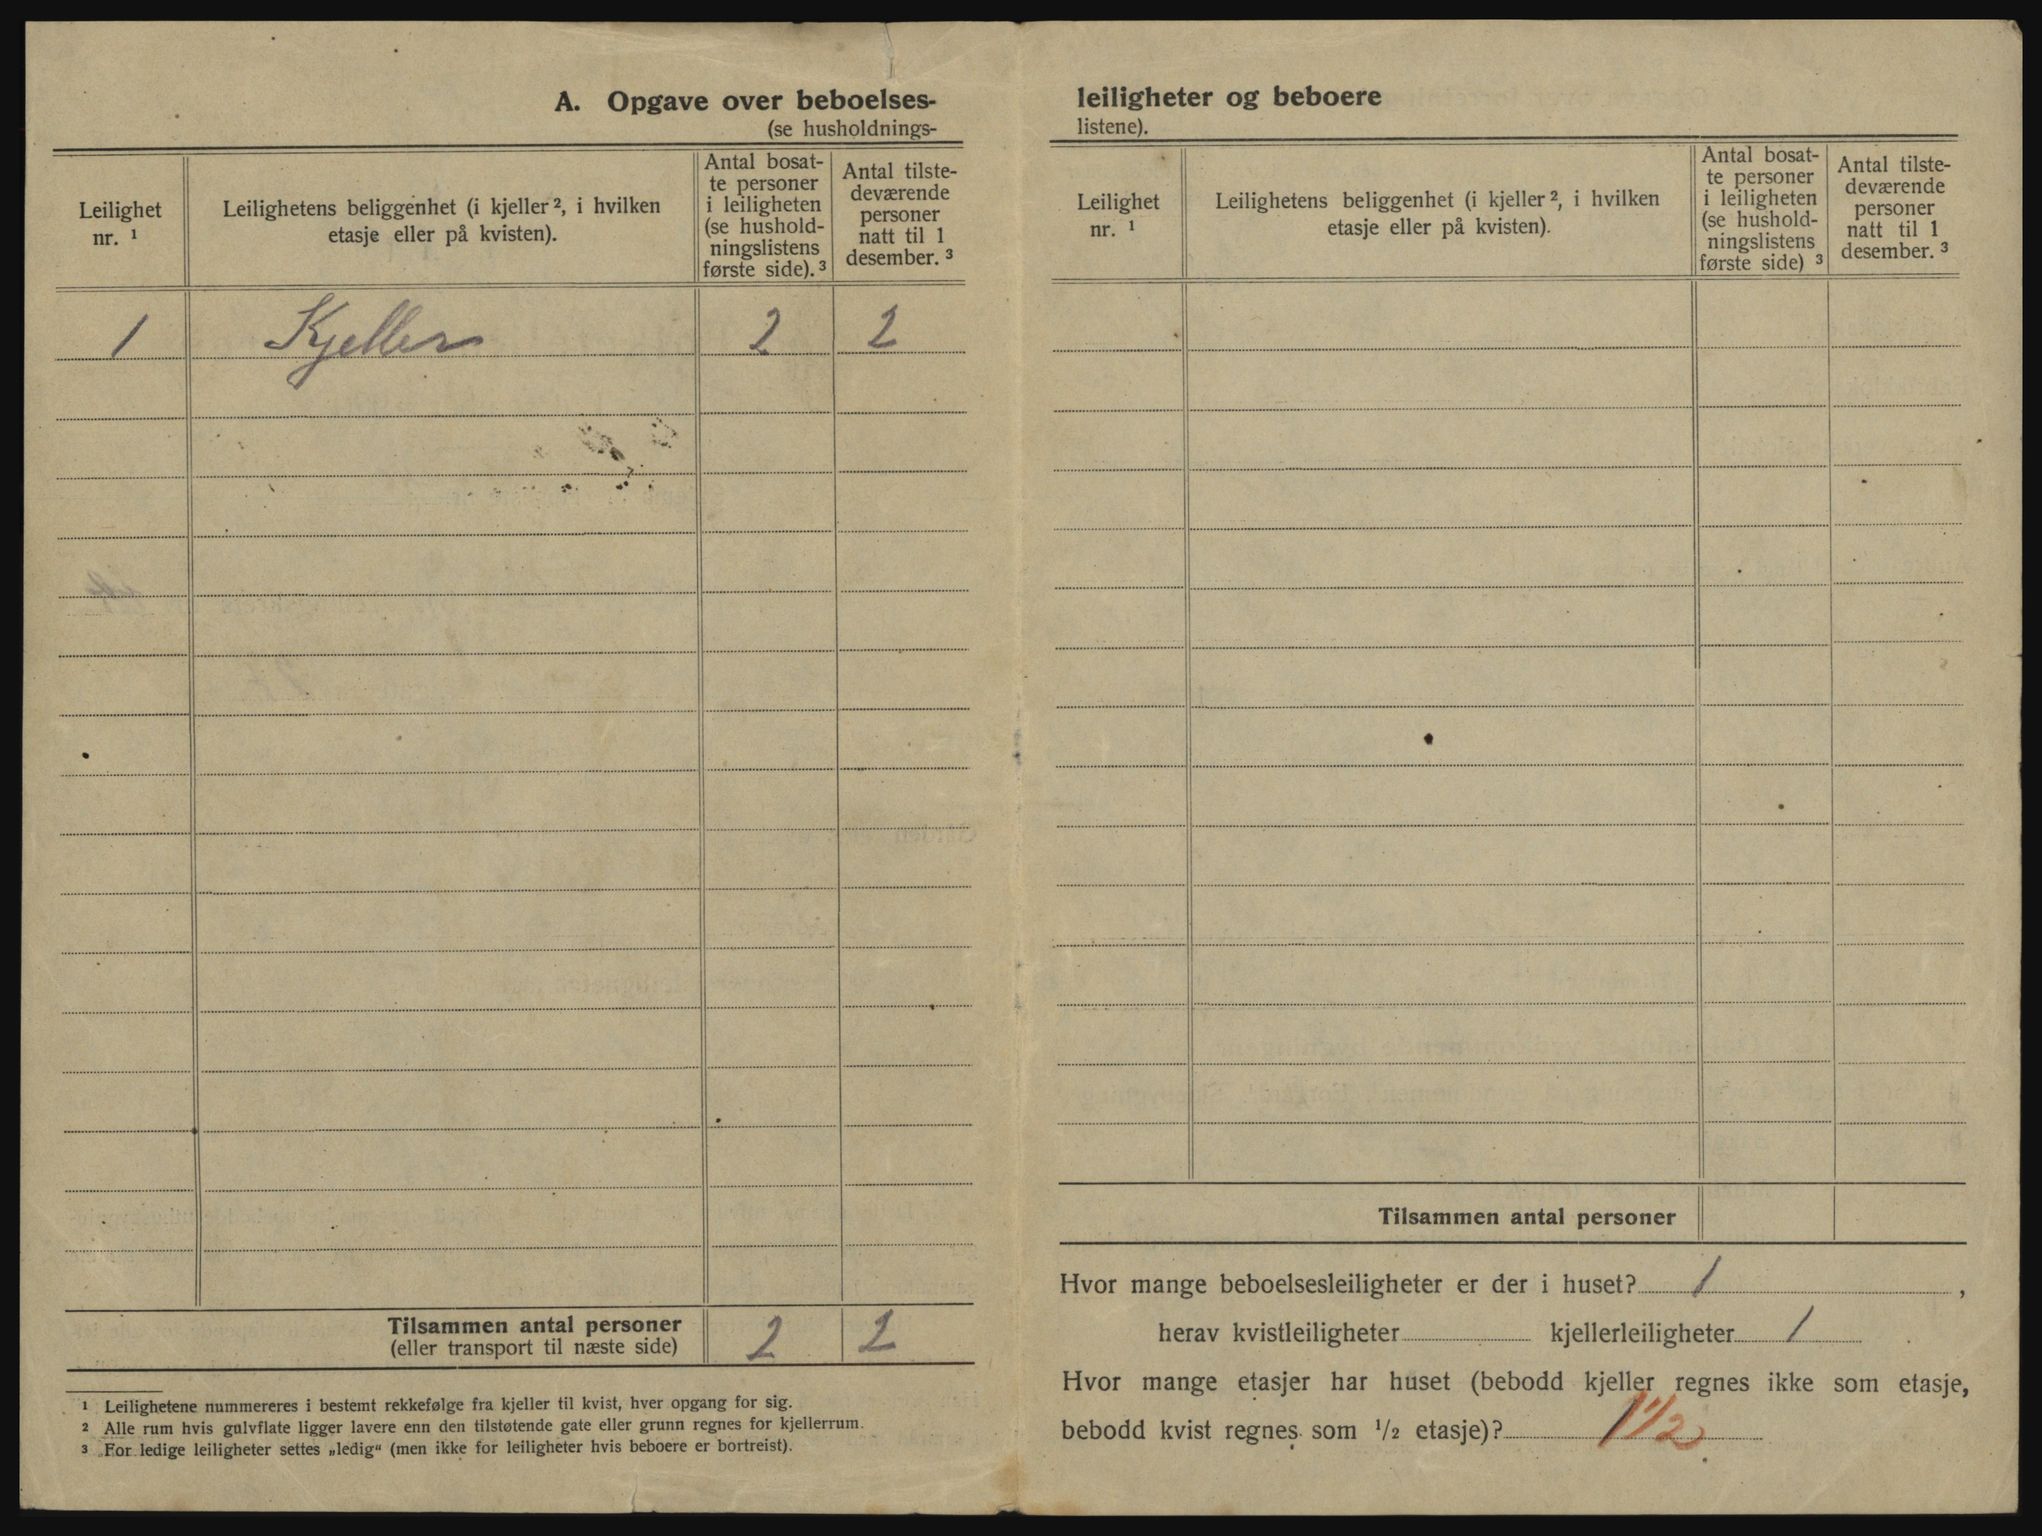 A. Opgave over beboelses-
(se husholdnings-
Leilighet
nr. ¹
Leilighetens beliggenhet (i kjeller ², i hvilken
etasje eller på kvisten).
Antal bosat-
te personer
i leiligheten
(se hushold-
ningslistens
første side). ³
Antal tilste-
deværende
personer
natt til 1
desember. ³
1 Kjeller 2 2
Tilsammen antal personer 2 2
(eller transport til næste side)
¹ Leilighetene nummereres i bestemt rekkefølge fra kjeller til kvist, hver opgang for sig.
² Alle rum hvis gulvflate ligger lavere enn den tilstøtende gate eller grunn regnes for kjellerrum.
³ For ledige leiligheter settes „ledig“ (men ikke for leiligheter hvis beboere er bortreist).
leiligheter og beboere
listene).
Leilighet
nr. ¹
Leilighetens beliggenhet (i kjeller ², i hvilken
etasje eller på kvisten).
Antal bosat-
te personer
i leiligheten
(se hushold-
ningslistens
første side) ³
Antal tilste-
deværende
personer
natt til 1
desember. ³
Tilsammen antal personer
Hvor mange beboelsesleiligheter er der i huset? 1 ,
herav kvistleiligheter kjellerleiligheter 1 .
Hvor mange etasjer har huset (bebodd kjeller regnes ikke som etasje,
bebodd kvist regnes som ¹/₂ etasje)? 1 1/2